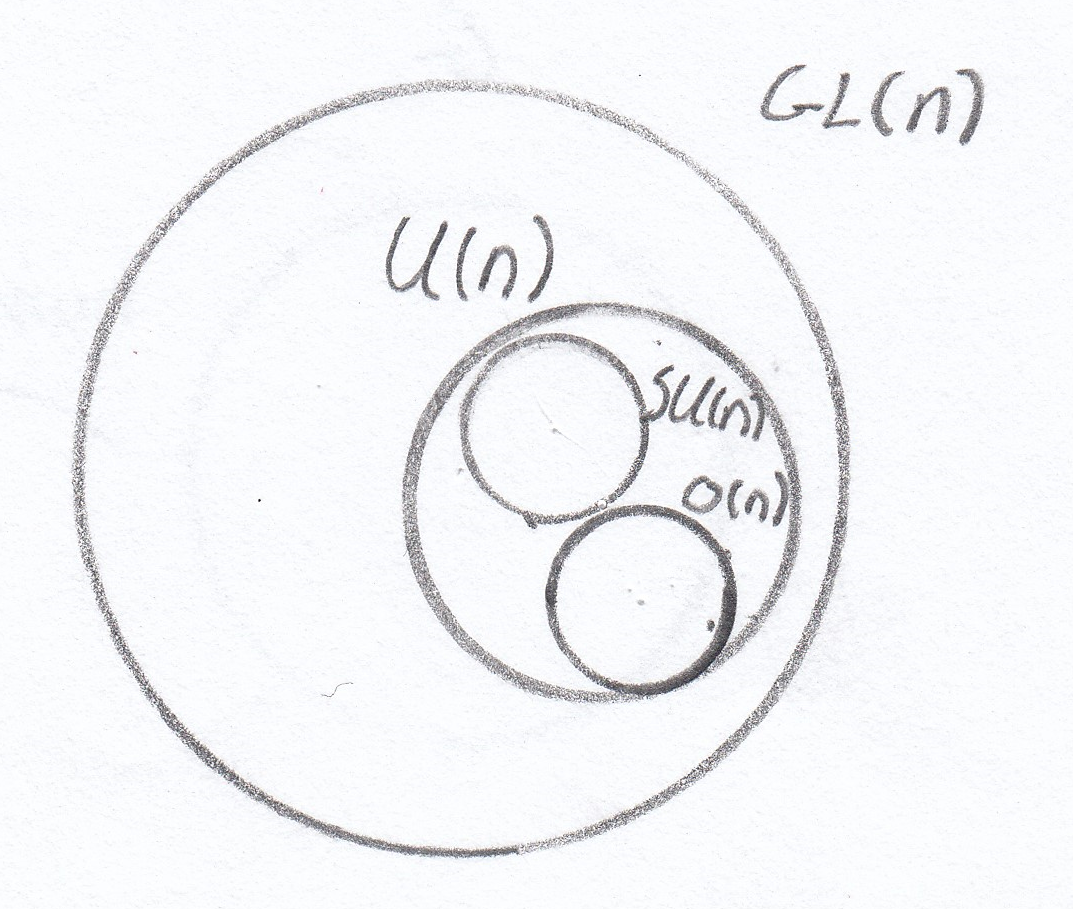 GL(n)
U(n)
SU(n)
O(n)